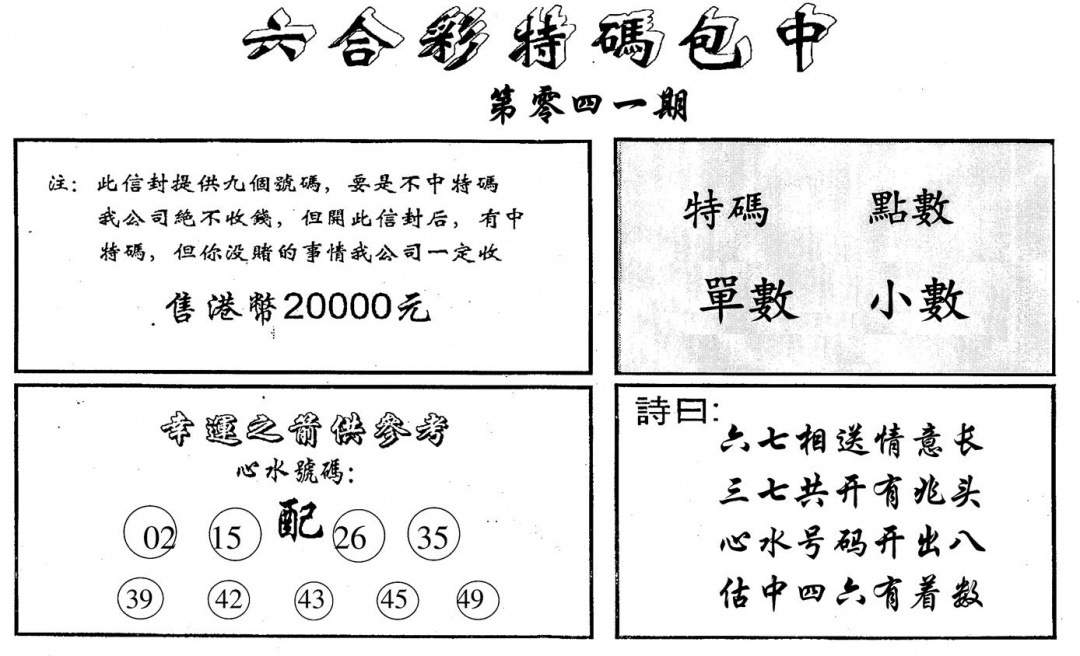 六合彩特碼包中
第零四一期
注：此信封提供九個號碼，要是不中特碼
我公司絕不收錢，但開此信封后，有中
特碼，但你没賭的事情我公司一定收
售港幣20000元
特碼 點數
單數 小數
幸運之箭供參考
心水號碼：
配
02 15 26 35
39 42 43 45 49
詩曰：
六七相送情意长
三七共开有兆头
心水号码开出八
估中四六有着数